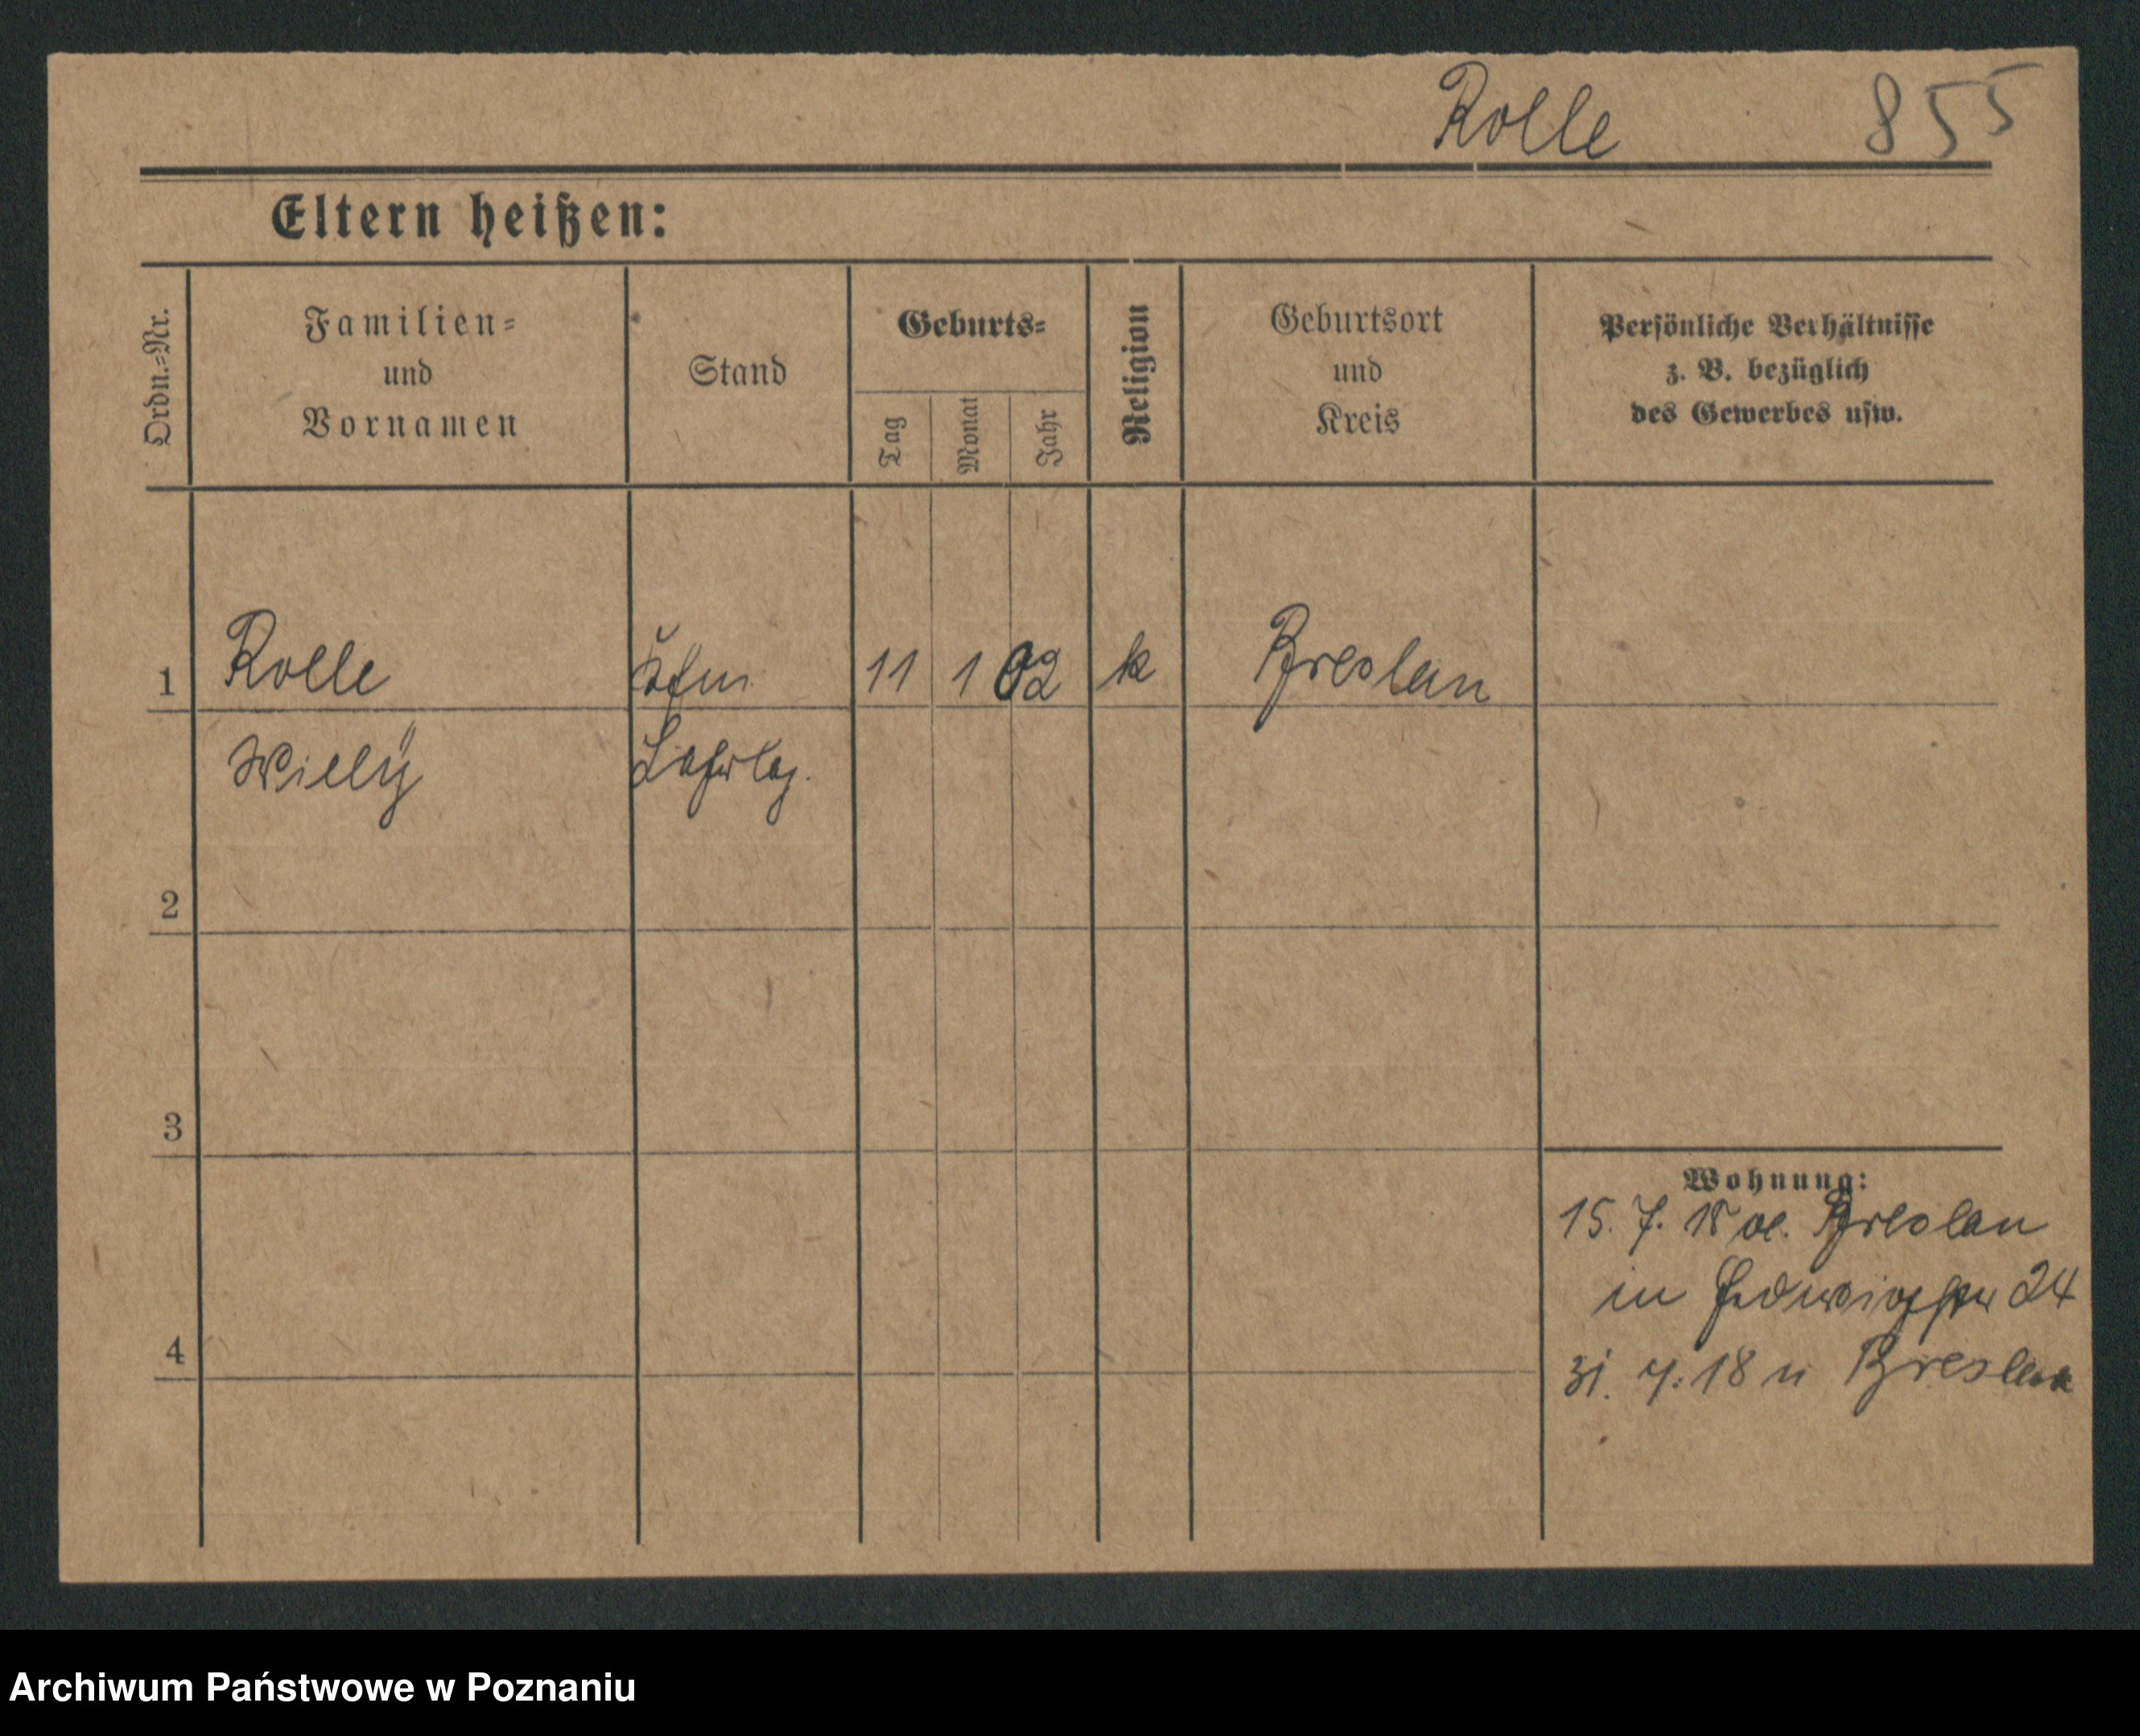 Rolle 855
Eltern heißen:
Ordn.-Nr.
Familien-
und
Vornamen
Stand
Geburts-
Tag
Monat
Jahr
Religion
Geburtsort
und
Kreis
Persönliche Verhältnisse
z. B. bezüglich
des Gewerbes usw.
1 Rolle Kfm. 11 1 02 k Breslau
Willy Lehrlg.
2
3
4
Wohnung:
15. 7. 18 Breslau
in 24
31. 7. 18 n Breslau
Archiwum Państwowe w Poznaniu